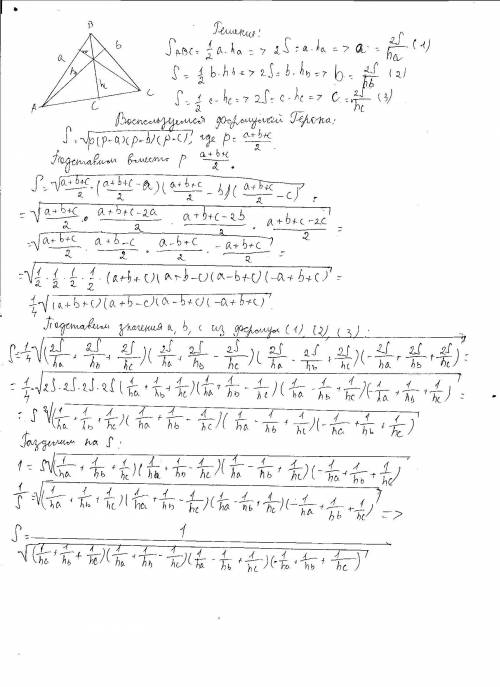 Решение:
B
a
b
A
B
h
A
C
C
S ABC = 1/2 a·ha => 2S = a·ha => a = 2S/ha (1)
S = 1/2 b·hb => 2S = b·hb => b = 2S/hb (2)
S = 1/2 c·hc => 2S = c·hc => c = 2S/hc (3)
Воспользуемся формулой Герона:
S = √(p(p-a)(p-b)(p-c)), где p = (a+b+c)/2
Подставим вместо p (a+b+c)/2.
S = √((a+b+c)/2 · ((a+b+c)/2 - a)((a+b+c)/2 - b)((a+b+c)/2 - c)) =
= √((a+b+c)/2 · (a+b+c-2a)/2 · (a+b+c-2b)/2 · (a+b+c-2c)/2) =
= √((a+b+c)/2 · (a+b-c)/2 · (a-b+c)/2 · (-a+b+c)/2) =
= √(1/2 · 1/2 · 1/2 · 1/2 · (a+b+c)(a+b-c)(a-b+c)(-a+b+c)) =
1/4 √((a+b+c)(a+b-c)(a-b+c)(-a+b+c))
Подставим значения a, b, c из формул (1), (2), (3):
S = 1/4 √((2S/ha + 2S/hb + 2S/hc)(2S/ha + 2S/hb - 2S/hc)(2S/ha - 2S/hb + 2S/hc)(-2S/ha + 2S/hb + 2S/hc)) =
= 1/4 · √(2S·2S·2S·2S (1/ha + 1/hb + 1/hc)(1/ha + 1/hb - 1/hc)(1/ha - 1/hb + 1/hc)(-1/ha + 1/hb + 1/hc)) =
= S² √((1/ha + 1/hb + 1/hc)(1/ha + 1/hb - 1/hc)(1/ha - 1/hb + 1/hc)(-1/ha + 1/hb + 1/hc))
Разделим на S:
1 = S √((1/ha + 1/hb + 1/hc)(1/ha + 1/hb - 1/hc)(1/ha - 1/hb + 1/hc)(-1/ha + 1/hb + 1/hc))
1/S = √((1/ha + 1/hb + 1/hc)(1/ha + 1/hb - 1/hc)(1/ha - 1/hb + 1/hc)(-1/ha + 1/hb + 1/hc)) =>
S = 1/√((1/ha + 1/hb + 1/hc)(1/ha + 1/hb - 1/hc)(1/ha - 1/hb + 1/hc)(-1/ha + 1/hb + 1/hc))